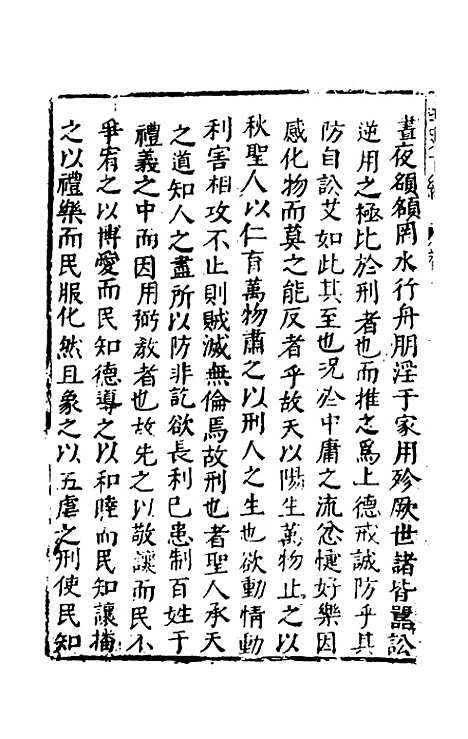 晝夜頟頟罔水行舟朋淫于家用殄厥世諸皆嚚訟
逆用之極比於刑者也而推之爲上德戒誠防乎其
防自訟艾如此其至也況於中庸之流忿懥好樂因
感化物而莫之能反者乎故天以陽生萬物止之以
秋聖人以仁育萬物肅之以刑人之生也欲動情動
利害相攻不止則賊滅無倫焉故刑也者聖人承天
之道知人之盡所以防非訖欲長利已患制百姓于
禮義之中而因用弼教者也故先之以敬讓而民不
爭宥之以博愛而民知德導之以和睦而民知讓播
之以禮樂而民服化然且象之以五虐之刑使民知